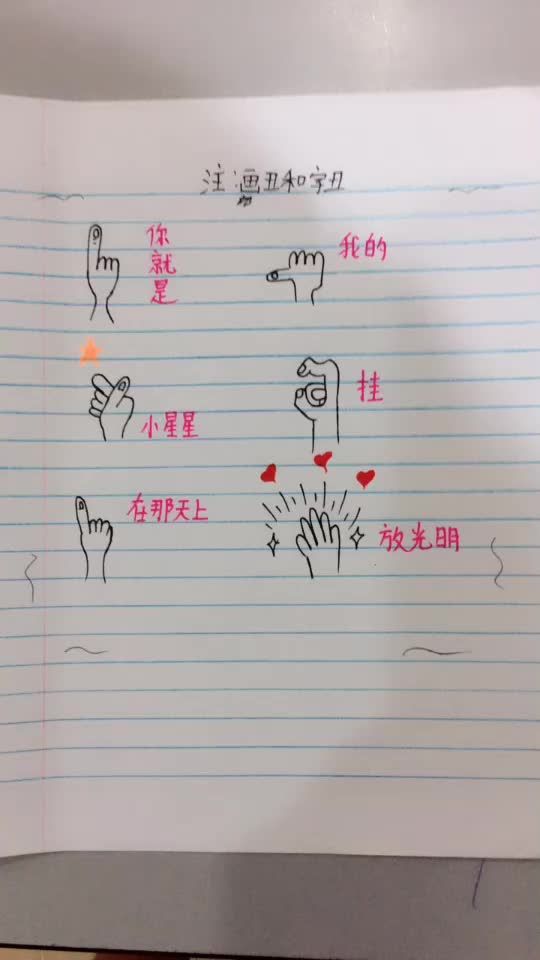 注:画丑和字丑
你就是
我的
小星星
挂
在那天上
放光明